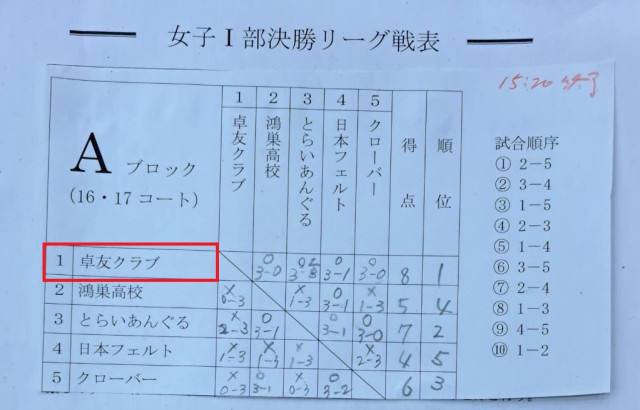 女子Ⅰ部決勝リーグ戦表
15:20 終了
A ブロック
(16・17コート)
1 卓友クラブ
2 鴻巣高校
3 とらいあんぐる
4 日本フェルト
5 クローバー
得点
順位
1 卓友クラブ ○ 3-0 ○ 3-2 ○ 3-1 ○ 3-0 8 1
2 鴻巣高校 × 0-3 × 1-3 ○ 3-1 × 1-3 5 4
3 とらいあんぐる × 2-3 ○ 3-1 ○ 3-1 ○ 3-0 7 2
4 日本フェルト × 1-3 × 1-3 × 1-3 × 2-3 4 5
5 クローバー × 0-3 ○ 3-1 × 0-3 ○ 3-2 6 3
試合順序
① 2-5
② 3-4
③ 1-5
④ 2-3
⑤ 1-4
⑥ 3-5
⑦ 2-4
⑧ 1-3
⑨ 4-5
⑩ 1-2